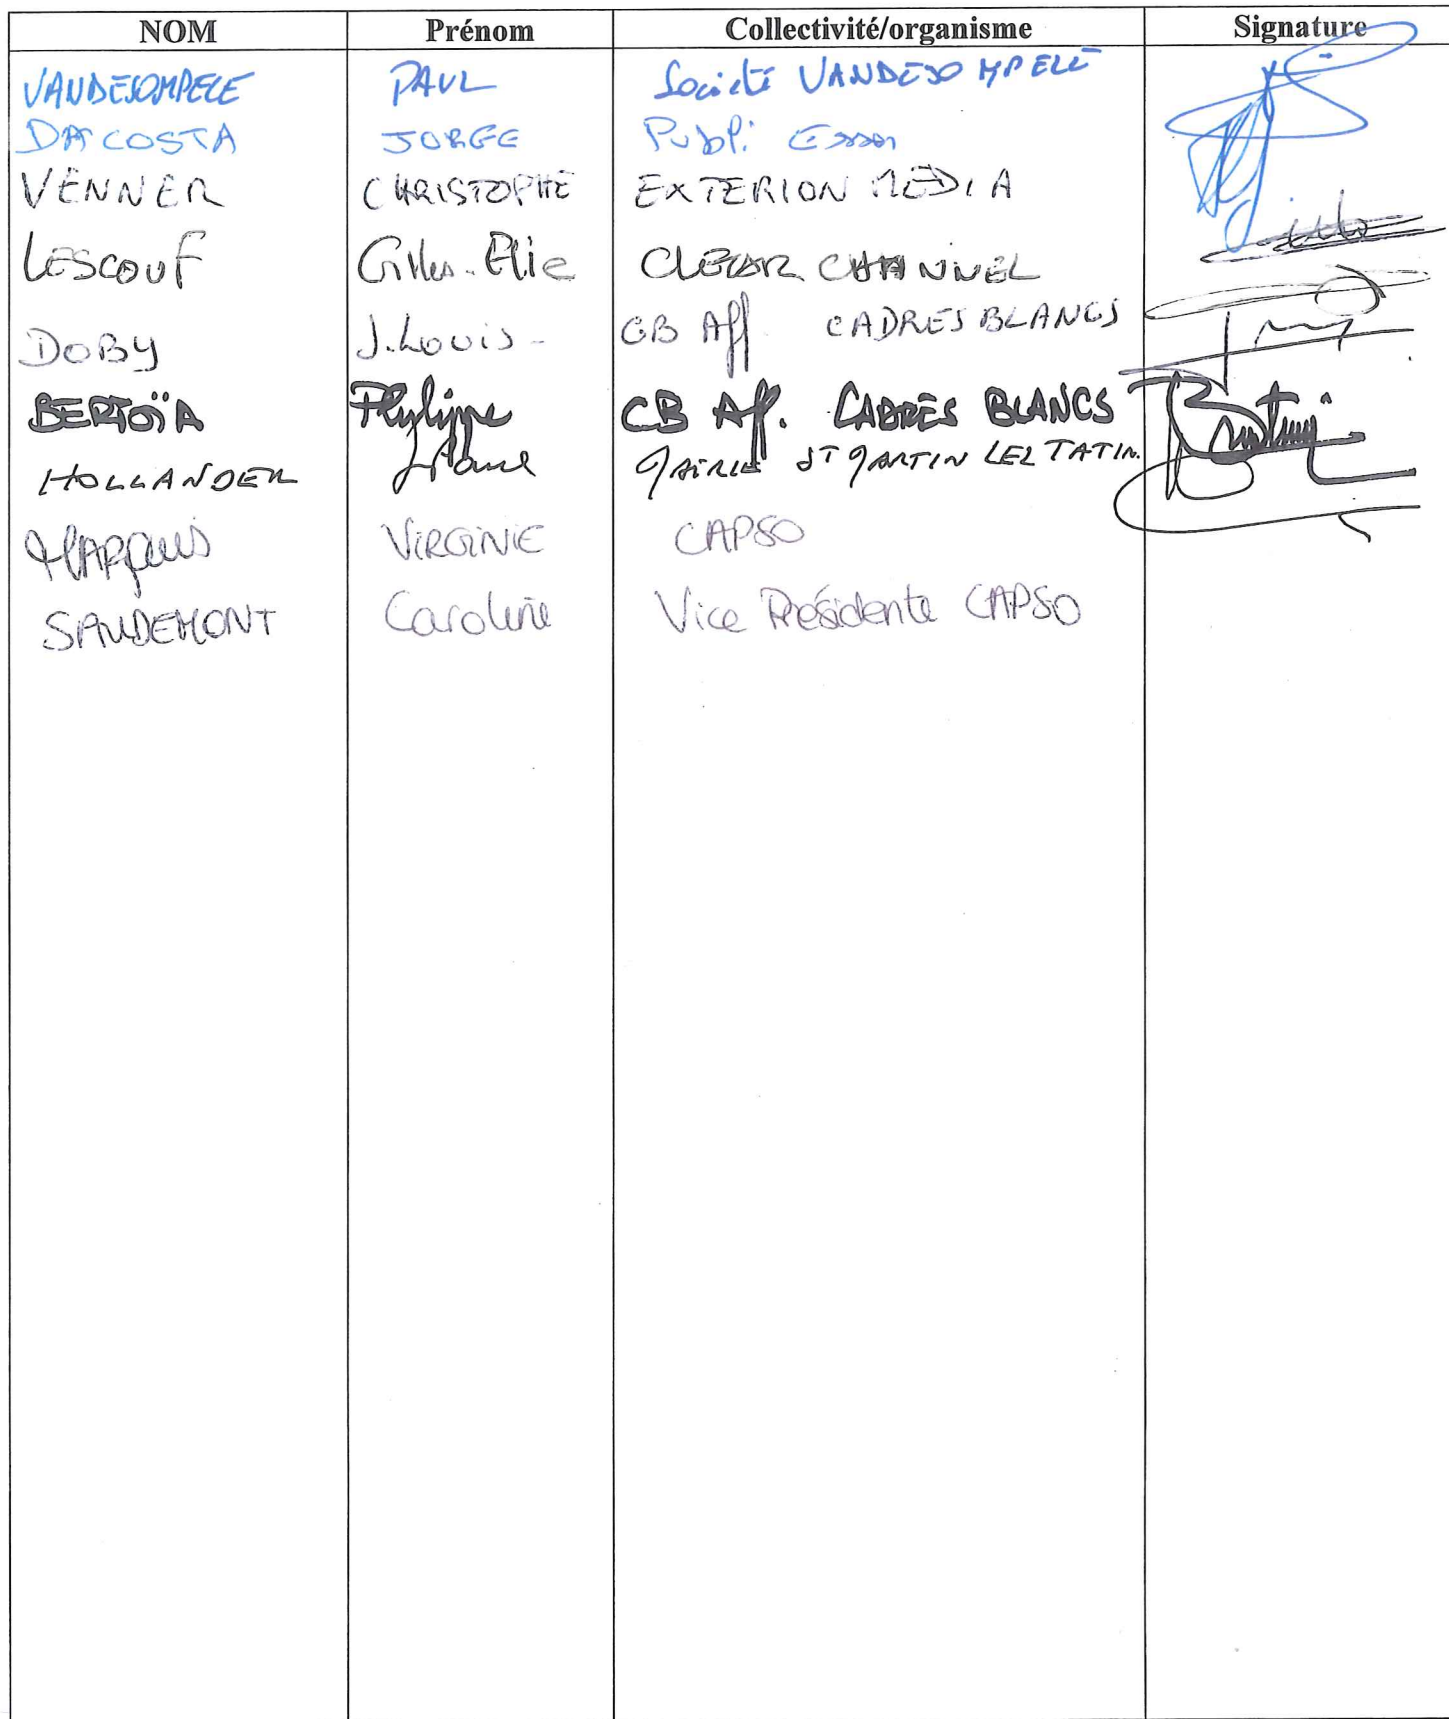 NOM Prénom Collectivité/organisme Signature
VANDESOMPELE PAUL Société VANDESOMPELE
DA COSTA JORGE Publi Essor
VENNER CHRISTOPHE EXTERION MEDIA
LESCOUF Gilles-Elie CLEAR CHANNEL
DOBY J.Louis - CB Aff CADRES BLANCS
BERTOÏA Phylippe CB Aff. CADRES BLANCS
HOLLANDER MAIRIE ST MARTIN LEZ TATIN.
MARQUIS VIRGINIE CAPSO
SAUDEMONT Caroline Vice Présidente CAPSO